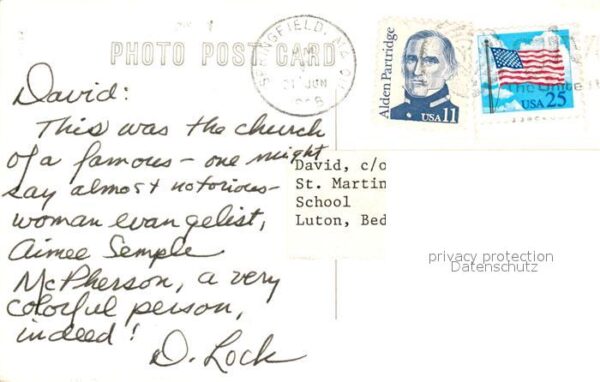 PHOTO POST CARD
SPRINGFIELD, MO
21 JUN
Alden Partridge
USA 11
USA 25
David:
This was the church
of a famous - one might
say almost notorious -
woman evangelist,
Aimee Semple
McPherson, a very
colorful person,
indeed!
D. Lock
David, c/o
St. Martin
School
Luton, Bed
privacy protection
Datenschutz